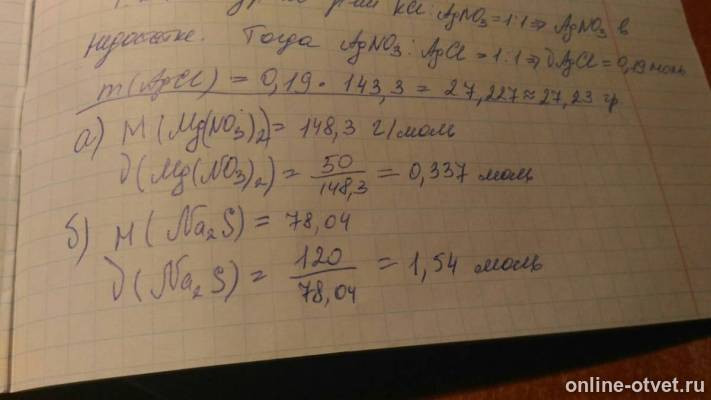 KCl : AgNO₃ = 1:1 ⇒ AgNO₃ в
недостатке. Тогда AgNO₃ : AgCl = 1:1 ⇒ ∂AgCl = 0,19 моль
m(AgCl) = 0,19 · 143,3 = 27,227 ≈ 27,23 гр
а) M(Mg(NO₃)₂) = 148,3 г/моль
∂(Mg(NO₃)₂) = 50/148,3 = 0,337 моль
б) M(Na₂S) = 78,04
∂(Na₂S) = 120/78,04 = 1,54 моль
online-otvet.ru